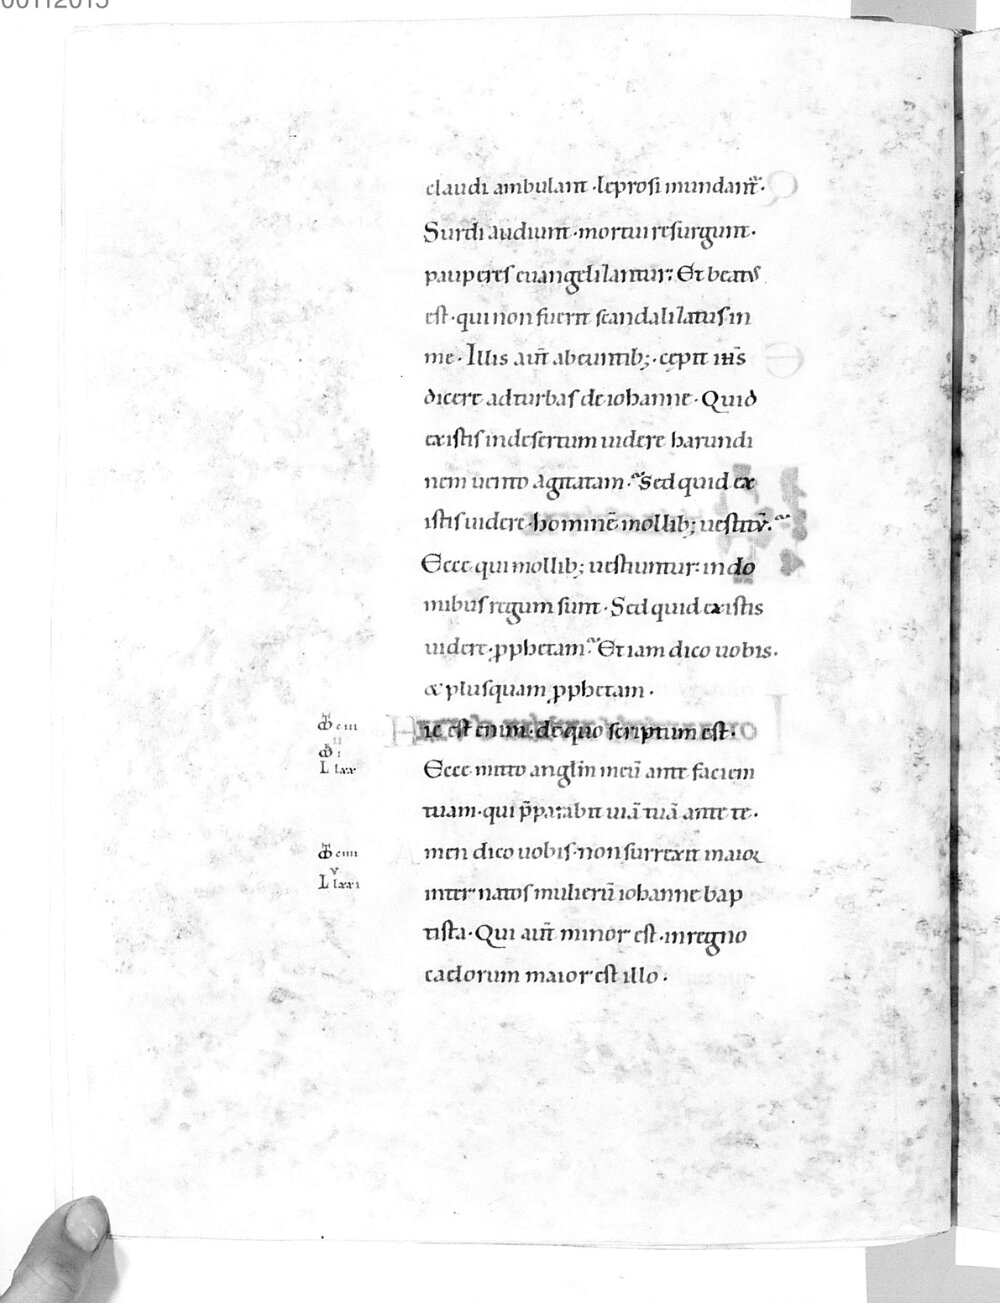 00112015
claudi ambulant · leprosi mundant̃ ·
Surdi audiunt · mortui resurgunt ·
pauperes euangelilantur : Et beatus
est · qui non fuerit scandalilatus in
me · Illis aut̃ abeuntib; · cepit ih̄s
dicere ad turbas de iohanne · Quid
existis in desertum uidere harundi
nem uento agitatam · Sed quid ex
istis uidere · hominē mollib; uestitū ·
Ecce qui mollib; uestiuntur · in do
mibus regum sunt · Sed quid existis
uidere · pphetam · Et iam dico uobis ·
& plusquam pphetam ·
Hic est enim · de quo scriptum est ·
Ecce mitto anglm meū ante faciem
tuam · qui p̄parabit uiā tuā ante te ·
Amen dico uobis · non surrexit maior
inter natos mulierū iohanne bap
tista · Qui aut̃ minor est · in regno
caelorum maior est illo ·
L lxx
L lxxi